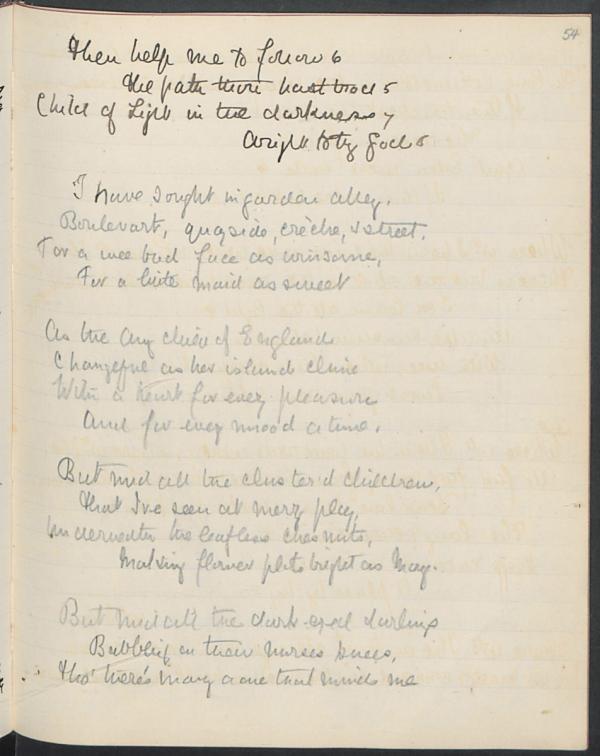 54
Then help me to follow 6
the path thou hast trod 5
Child of Light in the darkness 7
aright to thy God 5
I have sought in garden alley,
Boulevart, quayside, crèche, & street,
For a wee bud face as winsome,
For a little maid as sweet
As the any child of England
Changeful as her island clime
With a heart for every pleasure
And for every mood a time.
But mid all the cluster'd children,
that I've seen at merry play,
Underneath the leafless chesnuts,
Making flower plots bright as May.
But mid all the dark-eyed darlings
Bubbling on their nurses knees,
Tho' there's many a one that minds me